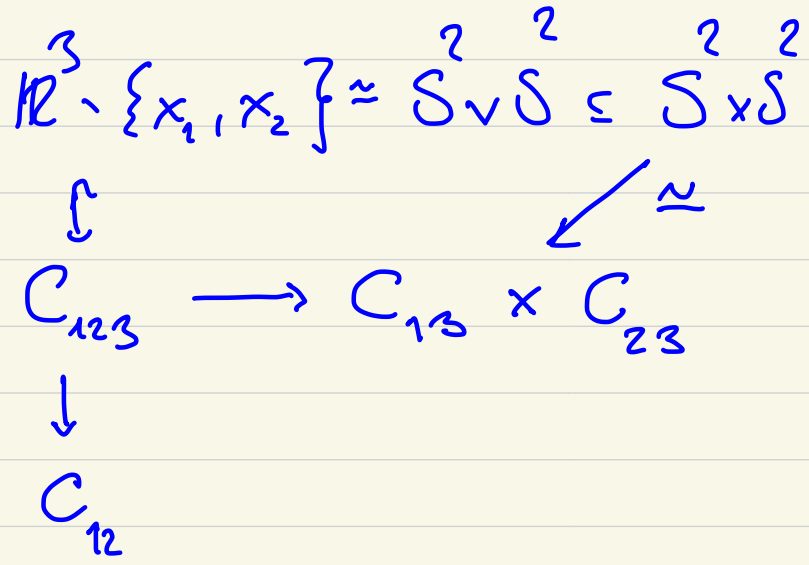 ℝ³ ∖ {x₁, x₂} ≃ S² ∨ S² ⊆ S² × S²
↙ ≃
C₁₂₃ ⟶ C₁₃ × C₂₃
↓
C₁₂